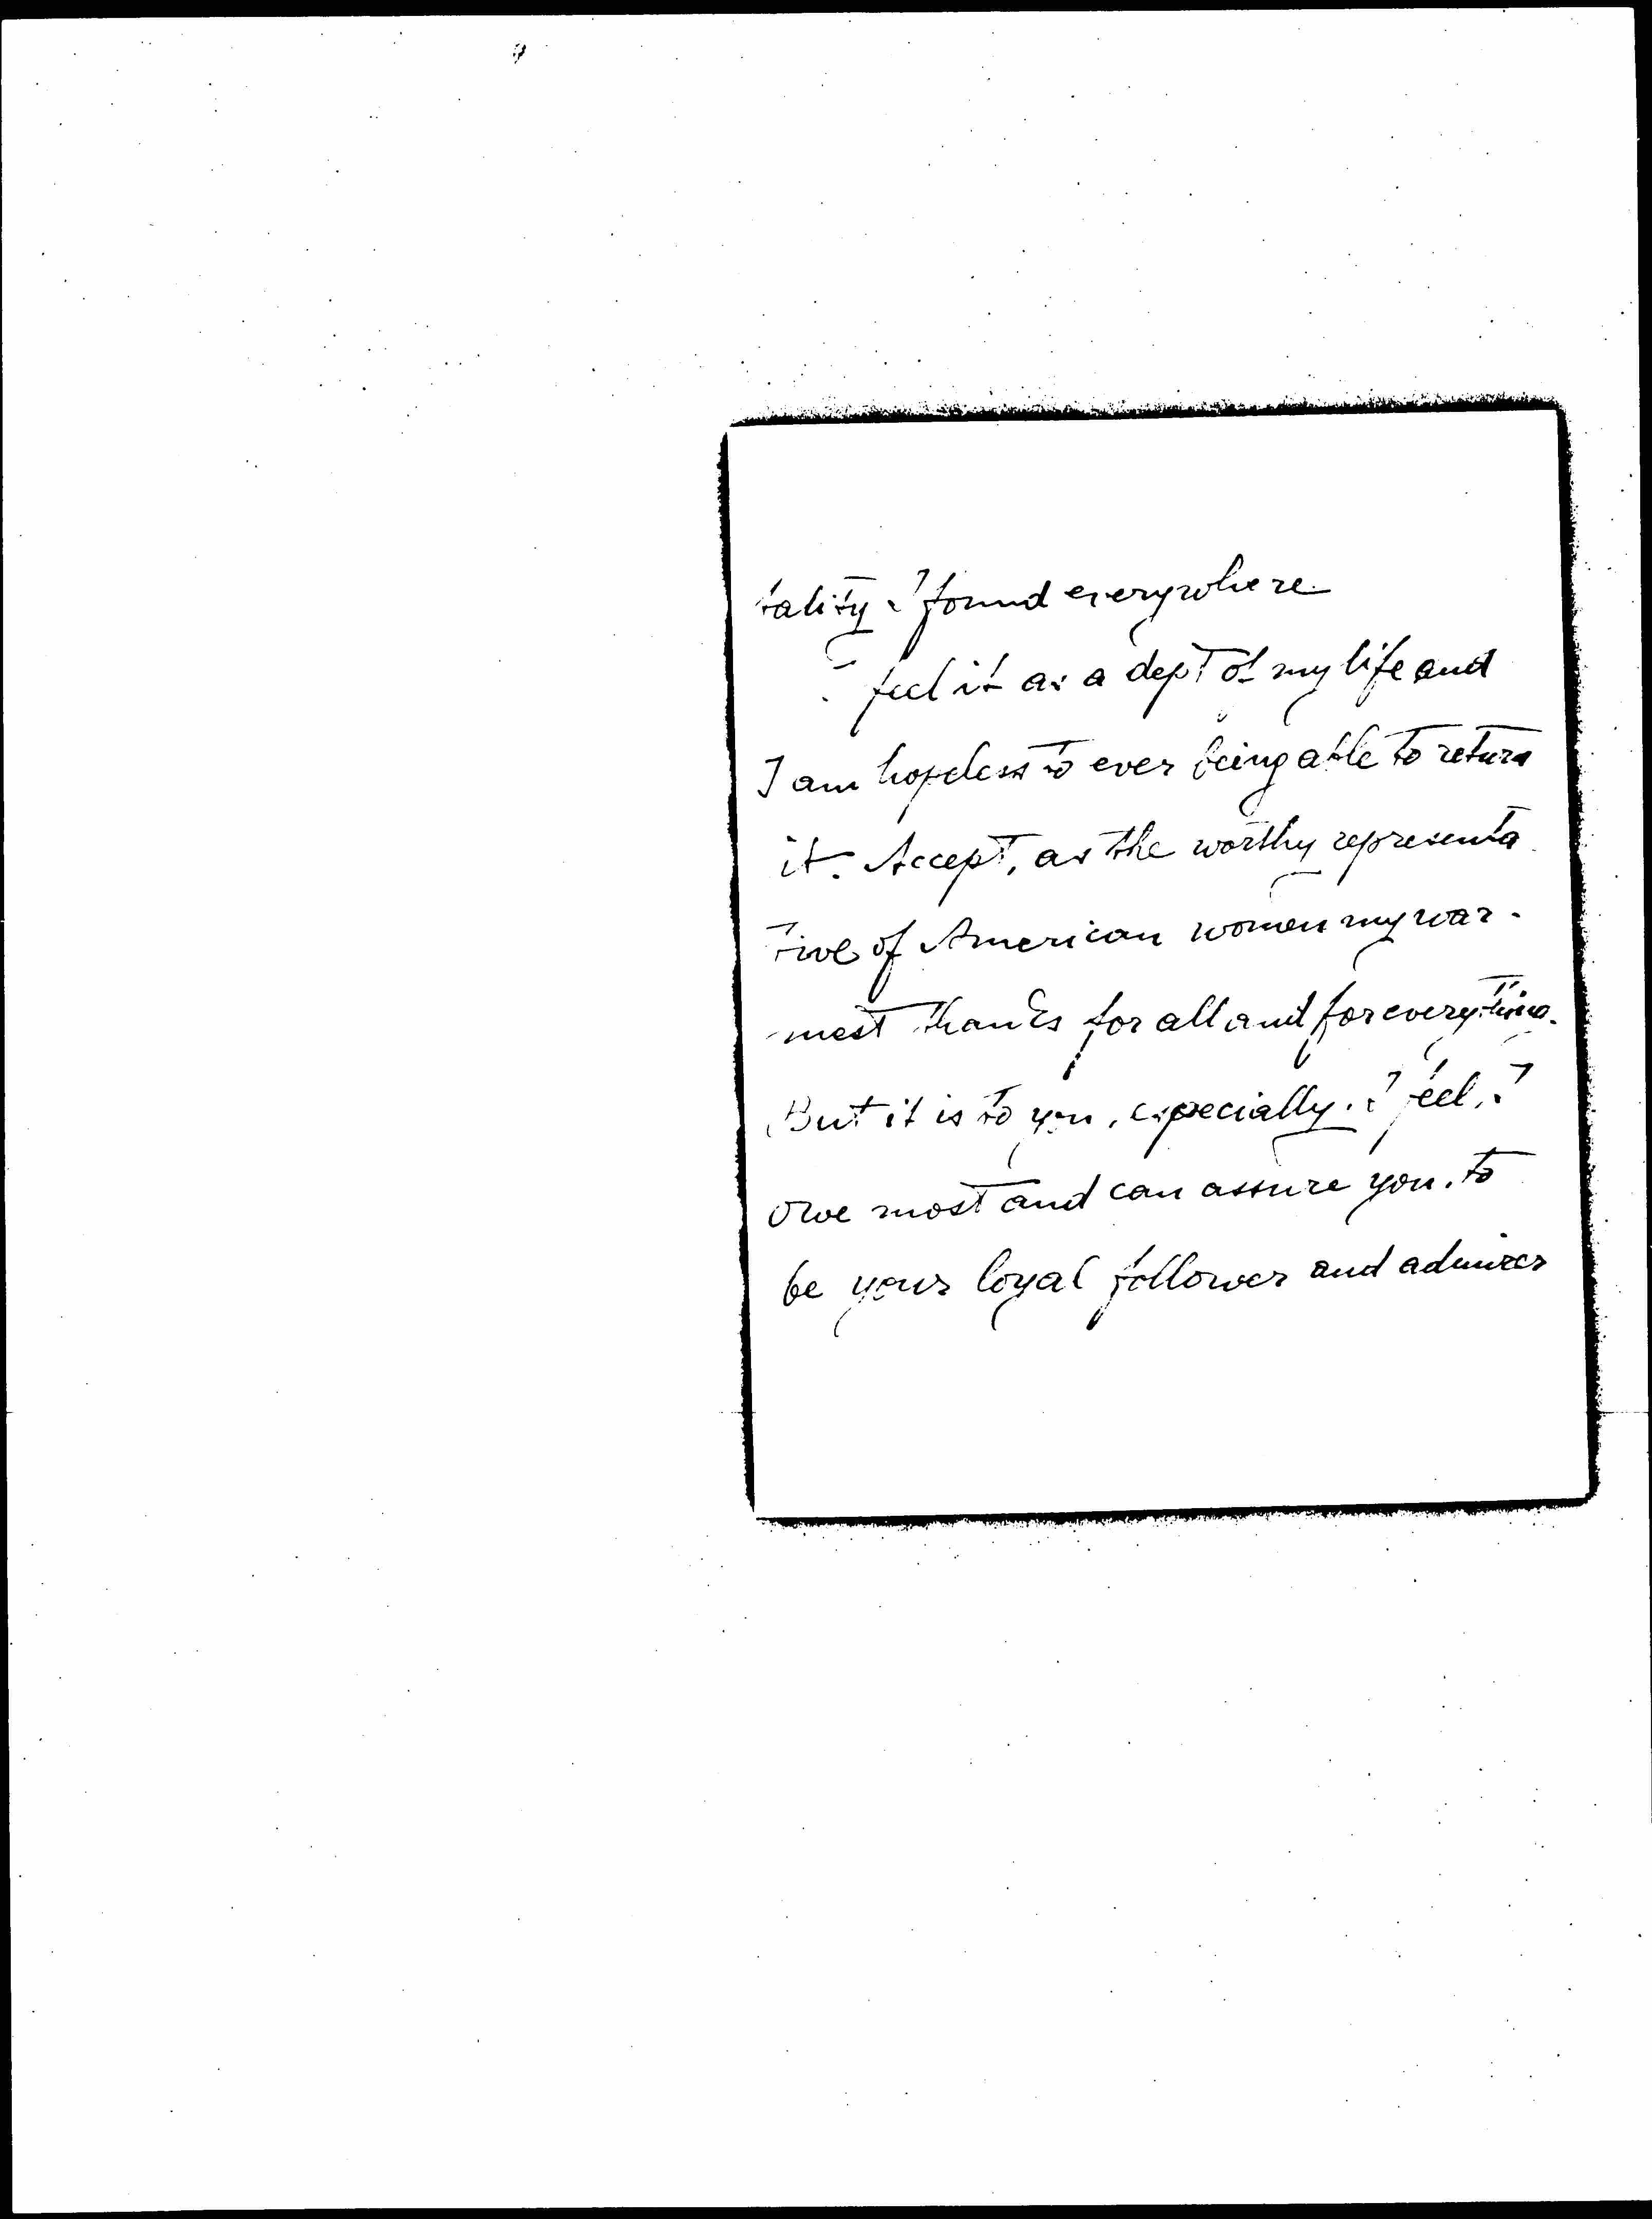 tality I found everywhere.
I feel it as a dept of my life and
I am hopeless to ever being able to return
it. Accept, as the worthy representa
tive of American women my war-
mest thanks for all and for everything.
But it is to you, especially. I feel, I
owe most and can assure you. to
be your loyal follower and admirer